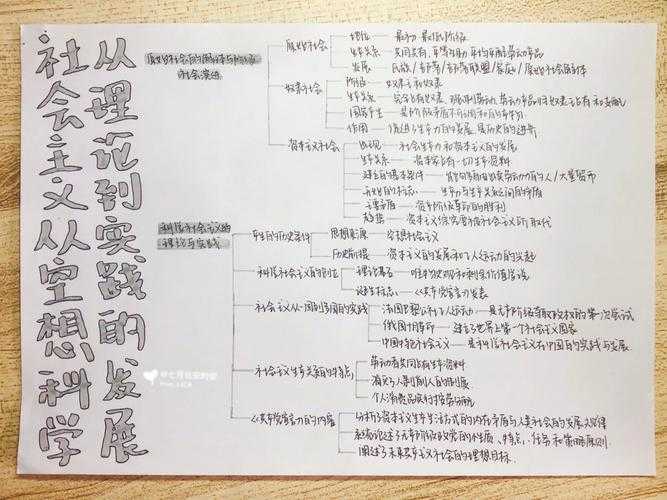 社会主义从空想科学
从理论到实践的发展
原始社会的解体与阶级
社会演进
原始社会
地位 — 最初 最低阶段
生产关系 — 共同占有,平等互助 平均分配劳动产品
发展 — 氏族/部落/部落联盟/家庭/原始社会解体
奴隶社会
阶级 — 奴隶主和奴隶
生产关系 — 完全占有奴隶,强制劳动,劳动产品归奴隶主占有和支配
国家产生 — 是阶级矛盾不可调和的产物
作用 — 促进了生产力的发展,是历史的进步
资本主义社会
出现 — 社会生产力和资本主义的发展
生产关系 — 资本家占有一切生产资料
建立的基本条件 — 能自由出卖劳动力的人/大量货币
基本矛盾 — 生产力与生产关系之间的矛盾
趋势 — 资本主义终究要被社会主义所取代
科学社会主义的
理论与实践
产生的历史条件
思想来源 — 空想社会主义
历史前提 — 资本主义的发展和工人运动的兴起
科学社会主义的创立
理论基石 — 唯物史观和剩余价值学说
诞生标志 — 《共产党宣言》发表
社会主义从一国到多国的实践
法国巴黎公社工人运动 — 是无产阶级夺取政权的第一次尝试
俄国十月革命 — 建立了世界上第一个社会主义国家
中国特色社会主义 — 是科学社会主义在中国的实践与发展
社会主义生产关系的特点
劳动者共同占有生产资料
消灭了人剥削人的制度
个人消费品实行按劳分配
《共产党宣言》的内容
分析了资本主义生产方式的内在矛盾与人类社会的发展规律
系统论述了无产阶级政党的性质、特点、任务和策略原则.
阐述了未来共产主义社会的理想目标.